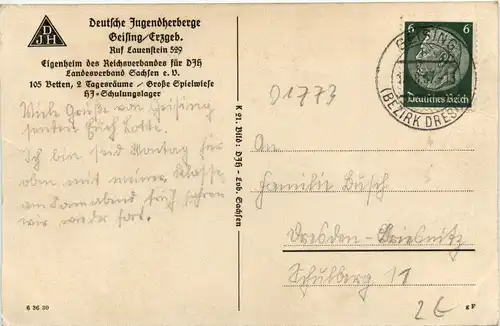 DJH
Deutsche Jugendherberge
Geising/Erzgeb.
Ruf Lauenstein 529
Eigenheim des Reichsverbandes für DJH
Landesverband Sachsen e. V.
105 Betten, 2 Tagesräume / Große Spielwiese
HJ-Schulungslager
Viele Grüße von Geising
senden Euch Lotte.
Ich bin seid Montag früh
oben mit meiner Klasse
am Sonnabend früh fahren
wir wieder fort.
6 36 30
K 21. Bild: DJH - Lvb. Sachsen
6 6
Deutsches Reich
GEISING
(BEZIRK DRESD
01773
An
Familie Busch
Dresden-Briesnitz
Schulberg 11
2€
g F